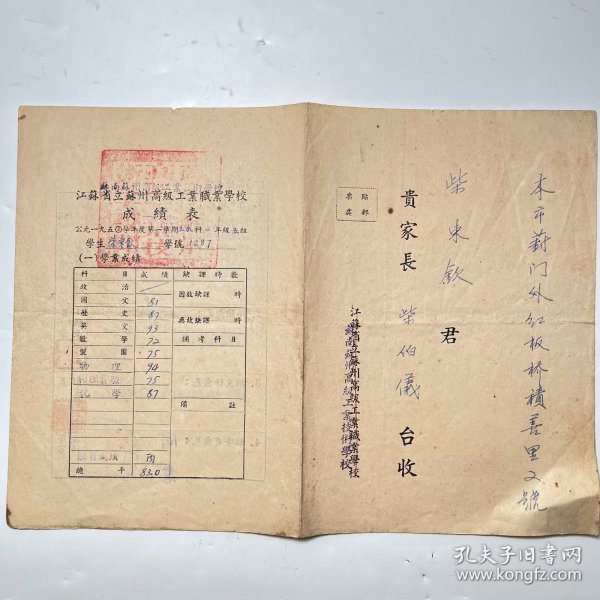 江蘇省立蘇州高級工業職業學校
成績表
公元一九五〇學年度第一學期土木科一年级五組
學生 柴東欽 學號 1287
(一)學業成績
科目 成績 缺課時數
政治
國文 81 因故缺課 時
歷史 87
英文 93 無故缺課 時
數學 72 補考科目
製圖 75
物理 94
75
化學 87 備註
丙
總平 83.0
貼郵
票處
本市葑門外紅板桥積善里2號
柴東欽 君
貴家長 柴伯儀 台收
江蘇省立蘇州高級工業職業學校
蘇南蘇州高級工業技術學校
孔夫子旧书网
www.kongfz.com